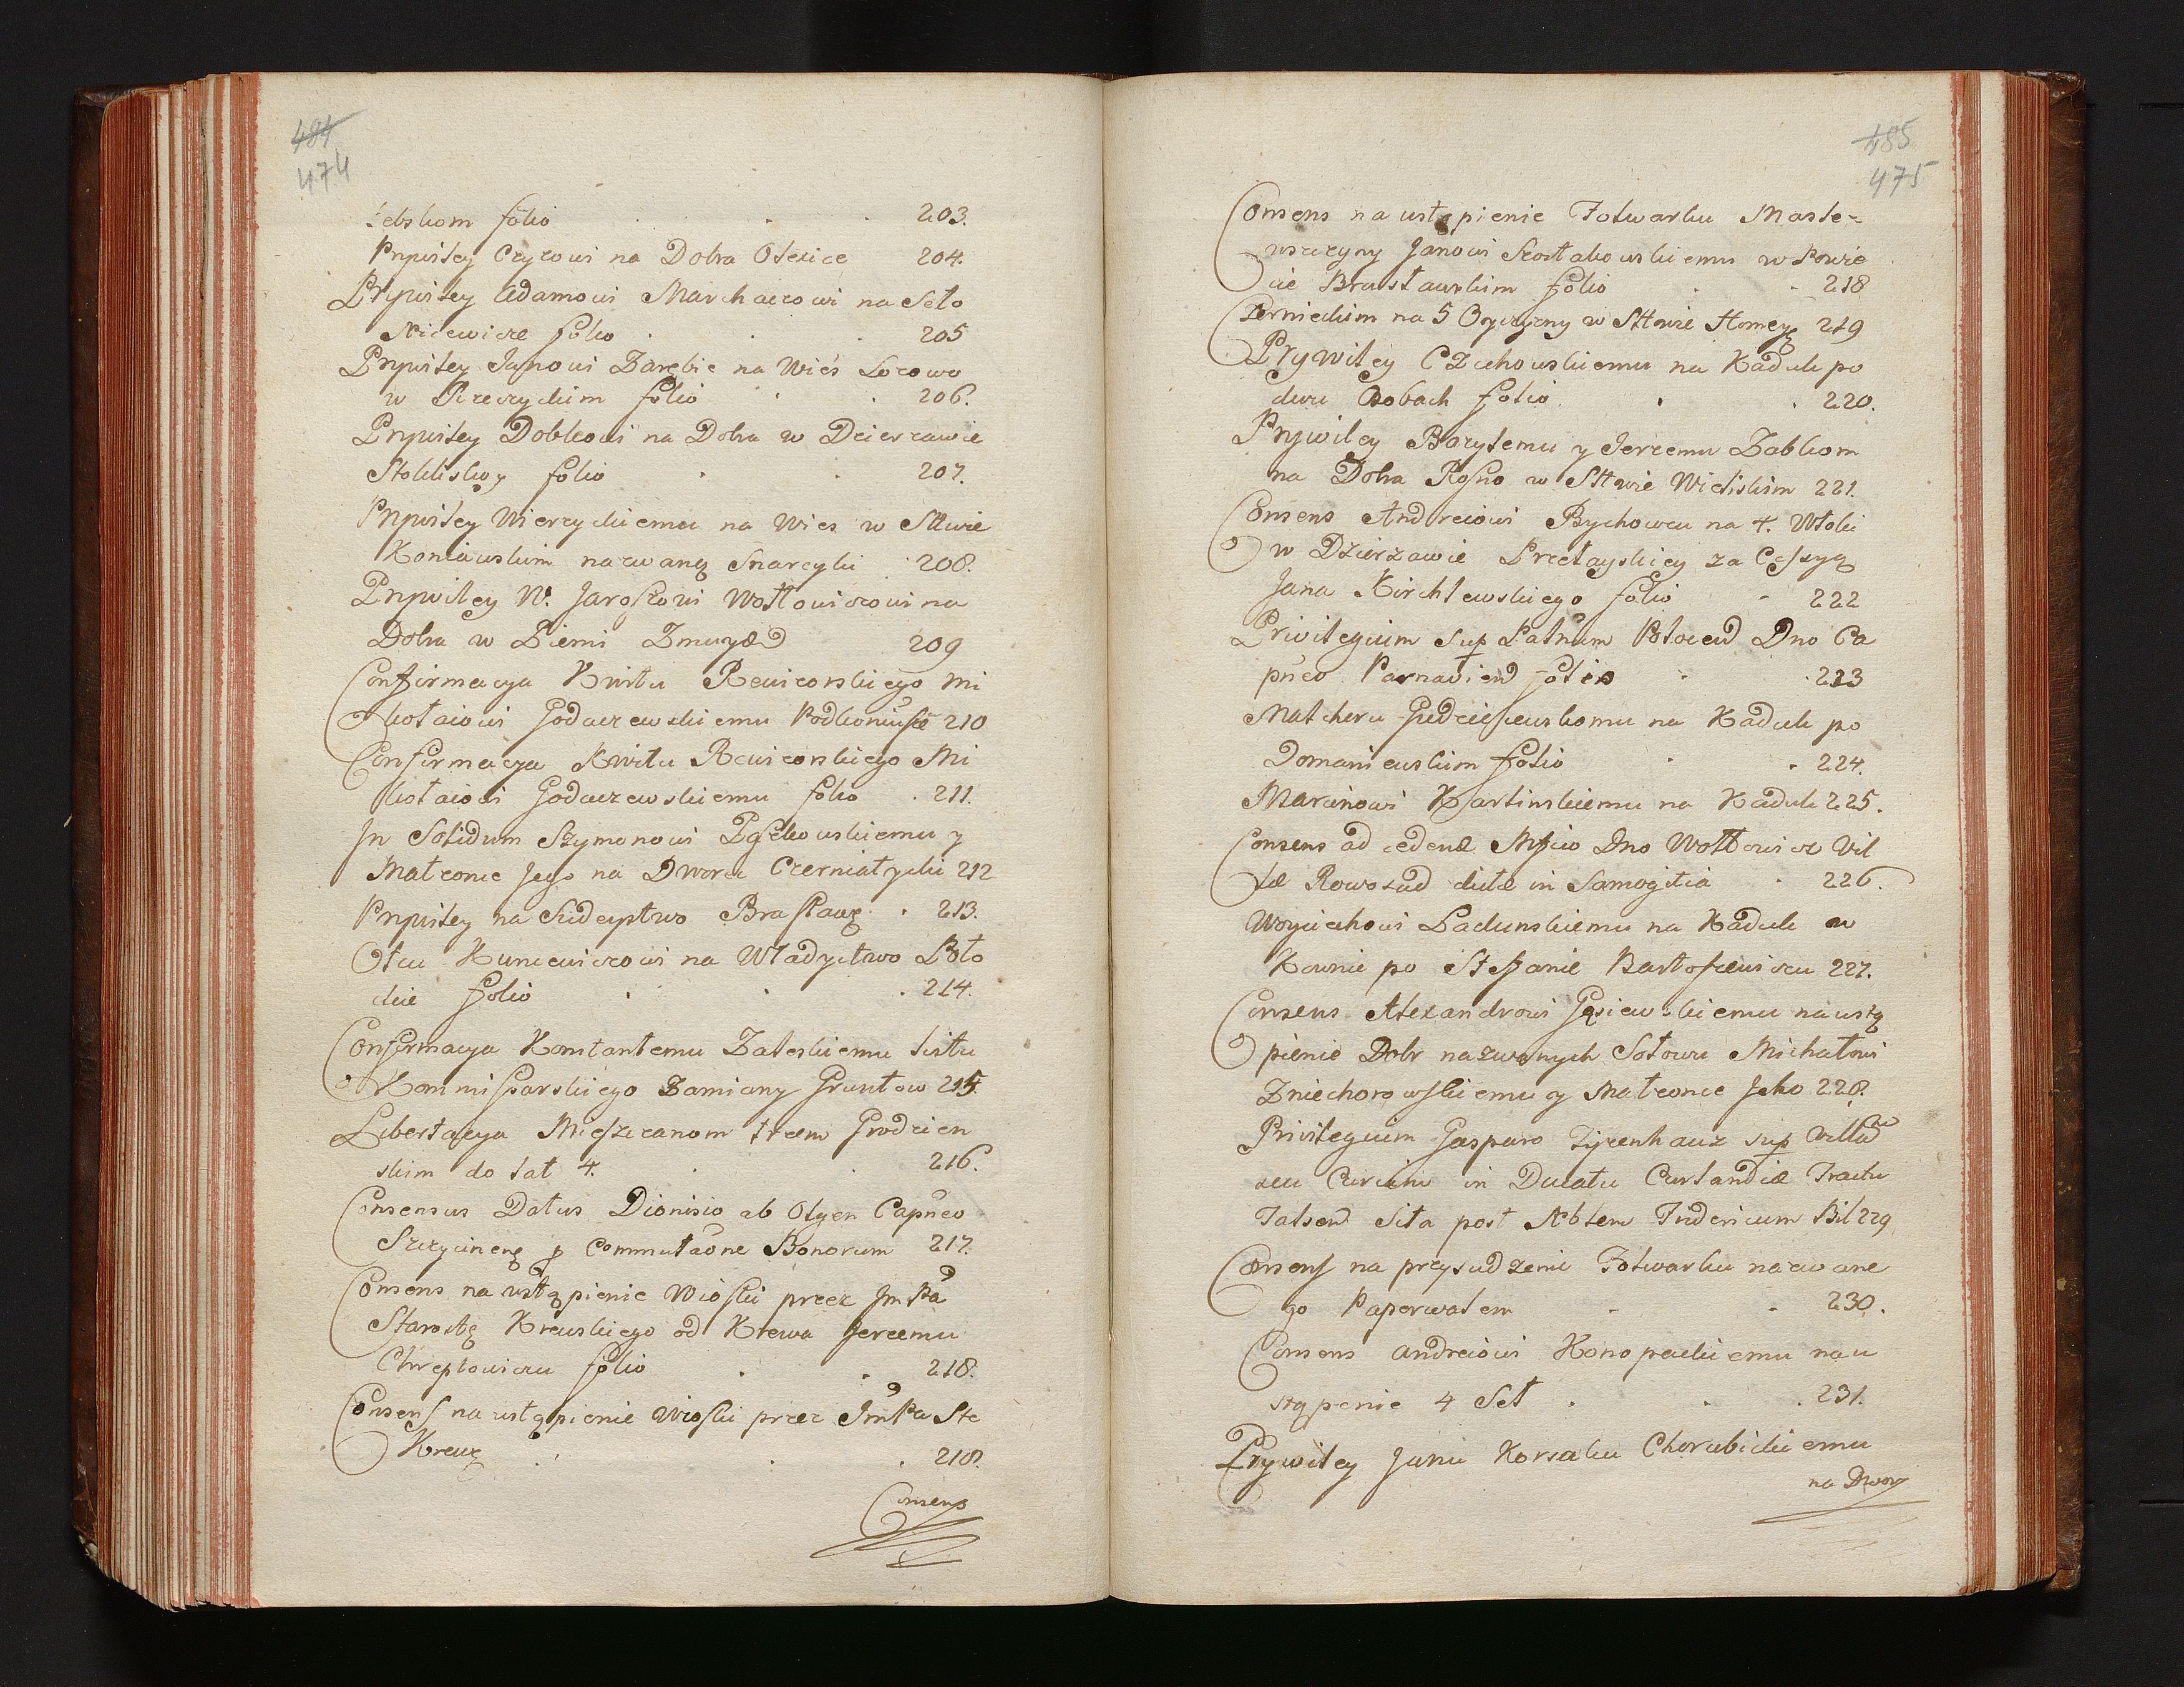 484
474
żebskom folio 203.
Prywiley Czyzowi na Dobra Olexice 204.
Prywiley Adamowi Marchaczowi na Seło
Nicewicze folio 205
Prywiley Janowi Zarębie na Wieś Łozowo
w Rzeczyckim folio 206.
Prywiley Dobkowi na Dobra w Dzierzawie
Stokliskoy folio 207.
Prywiley Wierzyckiemu na Wies w Sttwie
Koniawskim nazwaną Snarcyki 208.
Prywiley W. Jaroszowi Wołłowiczowi na
Dobra w Ziemi Zmuyd 209
Confirmacya Kwitu Rewizorskiego Mi
kołaiowi Godaczewskiemu Podkoniusze 210
Confirmacya Kwitu Rewizorskiego Mi
kołaiowi Godaczewskiemu folio 211.
In Solidum Szymonowi Paszkowskiemu y
Małzonce Jego na Dworzec Czerniatycki 212
Prywiley na Sudeystwo Brasławę 213.
Oycu Kuncewiczowi na Władyctwo Poło
ckie folio 214.
Confirmacya Konstantemu Zaleskiemu listu
Kommissarskiego Zamiany Gruntow 215.
Libertacya Mieszczanom trzem Grodzien
skim do lat 4. 216.
Consensus Datus Dionisio ab Olgen Capneo
Szczycineng p Commutaone Bonorum 217.
Consens na ustąpienie Wioski przez JmPa
Starostę Krewskiego od Krewa Jerzemu
Chreptowiczu folio 218.
Consens na ustąpienie Wioski przez JmPa Ste
Krewę 218.
Consens
485
475
Consens na ustąpienie Folwarku Maste-
wszczyny Janowi Szostakowskiemu w Powie
cie Brasławskim folio 218
Czernieckim na 5 Oyczyzny w Sttwie Homey 219
Prywiley Czechowskiemu na Kaduk po
dwu Bobach folio 220.
Prywiley Bazylemu y Jerzemu Zabkom
na Dobra Rosno w Sttwie Wieliskim 221.
Consens Andrzeiowi Bychowcu na 4. Włoki
w Dzierzawie Przełayskiey za Cessyą
Jana Kirchlewskiego folio 222
Privilegium sup Patnum Polocen Dno Ca
pneo Parnavien folio 223
Malcheru Gudzieszewskomu na Kaduk po
Domaniewskim folio 224.
Marcinowi Kartinskiemu na Kaduk 225.
Consens ad cedend Mfico Dno Wołłowicz Vil
læ Rowozud dictæ in Samogitia 226.
Woyciechowi Ladunskiemu na Kaduk w
Kownie po Stefanie Bartoszewiczu 227.
Consens Alexandrowi Gąsiewskiemu na ustą
pienie Dobr nazwanych Sołowu Michałowi
Zniechorowskiemu y Małzonce Jeho 228.
Privilegium Gasparo Tyzenhauz sup Villa
seu Curiam in Ducatu Curlandiæ Tractu
Talsen Sita post Ablem Fridericum Bil 229
Consens na przysudzenie Folwarku nazwane
go Paperwalem 230.
Consens Andrzeiowi Konopackiemu na u
stąpienie 4 Seł 231.
Prywiley Janu Korsaku Chorubickiemu
na Dwory